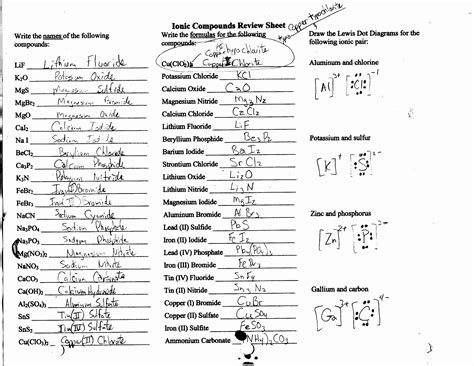 Ionic Compounds Review Sheet
Write the names of the following compounds:
LiF Lithium Fluoride
K₂O Potassium Oxide
MgS Magnesium Sulfide
MgBr₂ Magnesium Bromide
MgO Magnesium Oxide
CaI₂ Calcium Iodide
Na I Sodium Iodide
BeCl₂ Beryllium Chloride
Ca₃P₂ Calcium Phosphide
K₃N Potassium Nitride
FeBr₃
FeBr₂
NaCN Sodium Cyanide
Na₃PO₄ Sodium Phosphate
Na₃PO₃ Sodium Phosphite
Mg(NO₃)₂ Magnesium Nitrate
NaNO₃ Sodium Nitrate
CaCO₃ Calcium Carbonate
Ca(OH)₂ Calcium Hydroxide
Al₂(SO₄)₃ Aluminum Sulfate
SnS Tin(II) Sulfate
SnS₂ Tin(IV) Sulfate
Cu(ClO₃)₂ Copper(II) Chlorate
Write the formulas for the following compounds:
Cu(ClO₂)₂ Copper Chlorite
Potassium Chloride KCl
Calcium Oxide CaO
Magnesium Nitride Mg₃N₂
Calcium Chloride CaCl₂
Lithium Fluoride LiF
Beryllium Phosphide Be₃P₂
Barium Iodide BaI₂
Strontium Chloride SrCl₂
Lithium Oxide Li₂O
Lithium Nitride Li₃N
Magnesium Iodide MgI₂
Aluminum Bromide AlBr₃
Lead (II) Sulfide PbS
Iron (II) Iodide FeI₂
Lead (IV) Phosphate
Iron (III) Bromide FeBr₃
Tin (IV) Fluoride SnF₄
Tin (II) Nitride Sn₃N₂
Copper (I) Bromide CuBr
Copper (II) Sulfate CuSO₄
Iron (II) Sulfite FeSO₃
Ammonium Carbonate (NH₄)₂CO₃
Draw the Lewis Dot Diagrams for the following ionic pair:
Aluminum and chlorine
[Al]³⁺ [Cl]⁻¹
Potassium and sulfur
[K]⁺ [S]
Zinc and phosphorus
[Zn]²⁺ [P]³⁻
Gallium and carbon
[Ga]³⁺ [C]⁴⁻